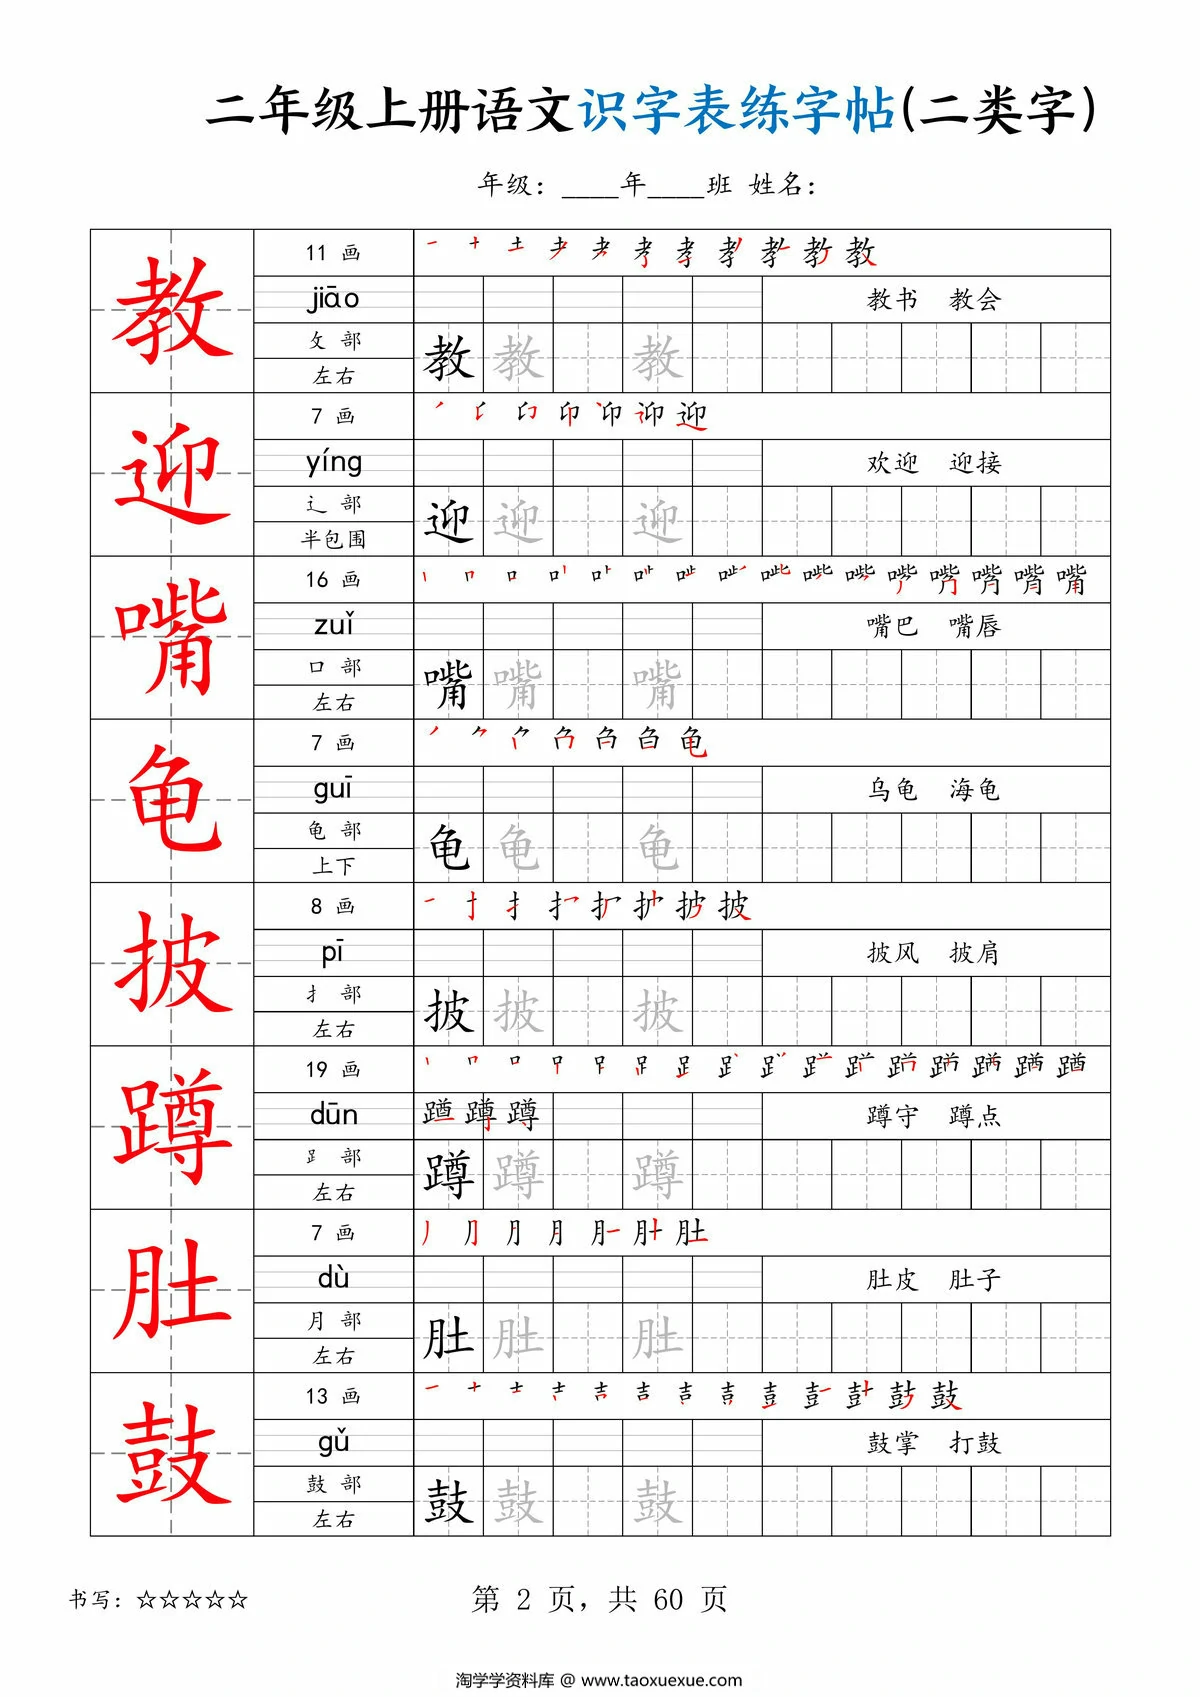 二年级上册语文识字表练字帖(二类字)
年级：____年____班 姓名：
教
11 画
jiāo
教书 教会
攵 部
左右
教 教 教
迎
7 画
yíng
欢迎 迎接
辶 部
半包围
迎 迎 迎
嘴
16 画
zuǐ
嘴巴 嘴唇
口 部
左右
嘴 嘴 嘴
龟
7 画
guī
乌龟 海龟
龟 部
上下
龟 龟 龟
披
8 画
pī
披风 披肩
扌 部
左右
披 披 披
蹲
19 画
dūn
蹲守 蹲点
⻊ 部
左右
蹲 蹲 蹲
肚
7 画
dù
肚皮 肚子
月 部
左右
肚 肚 肚
鼓
13 画
gǔ
鼓掌 打鼓
鼓 部
左右
鼓 鼓 鼓
书写：☆☆☆☆☆
第 2 页，共 60 页
淘学学资料库 @ www.taoxuexue.com